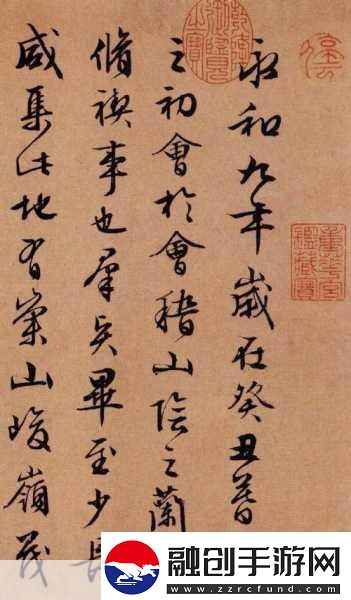 永和九年歲在癸丑暮
之初會於會稽山陰之蘭
脩禊事也羣賢畢至少長
咸集此地有崇山峻嶺茂
重華宮鑑藏寶
融创手游网
www.zzrcfund.com